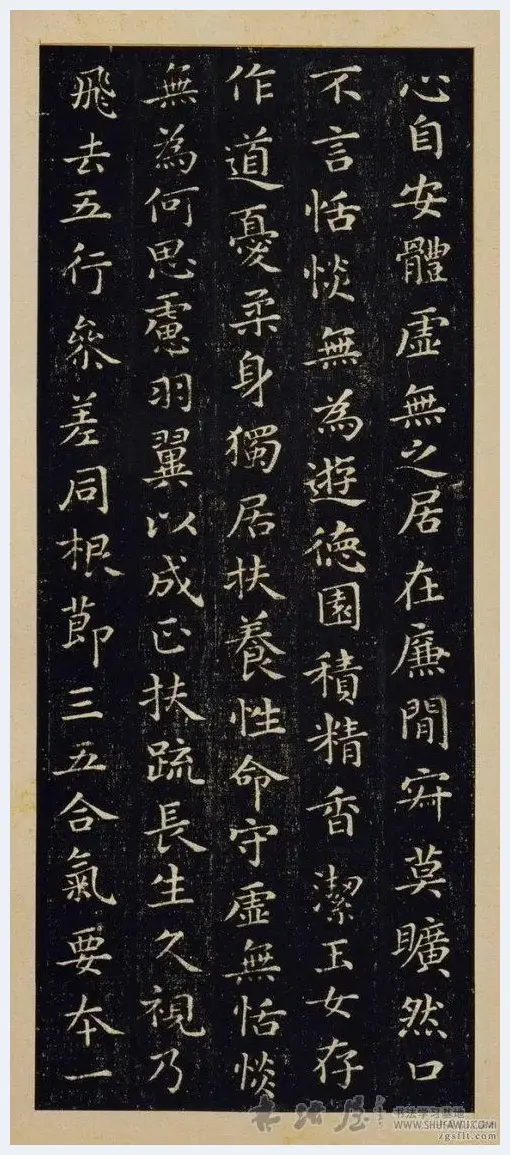 心自安體虛無之居在廉間寂莫曠然口
不言恬惔無為遊德園積精香潔玉女存
作道憂柔身獨居扶養性命守虛無恬惔
無為何思慮羽翼以成正扶疏長生久視乃
飛去五行參差同根節三五合氣要本一
书法屋
书法学习基地
WWW.SHUFAWU.COM
zgsflt.com